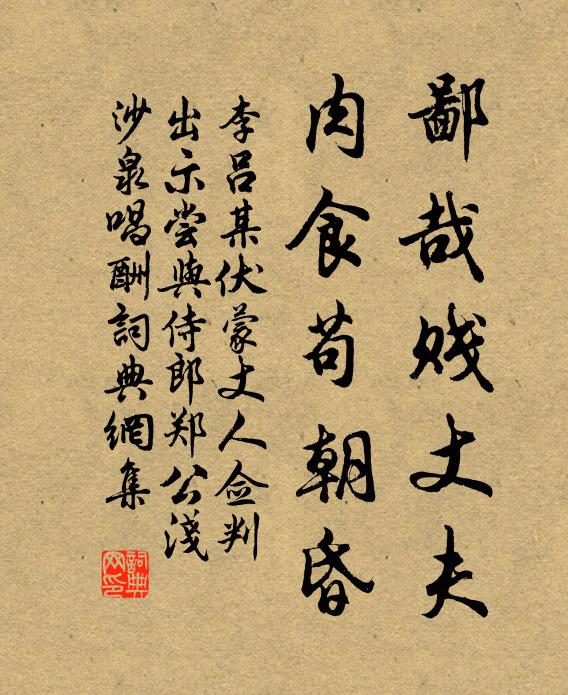 鄙哉贱丈夫
肉食苟朝昏
李呂某伏蒙丈人佥判
出示尝與侍郎郑公淺
沙泉唱酬詞典網集
詞典
网印